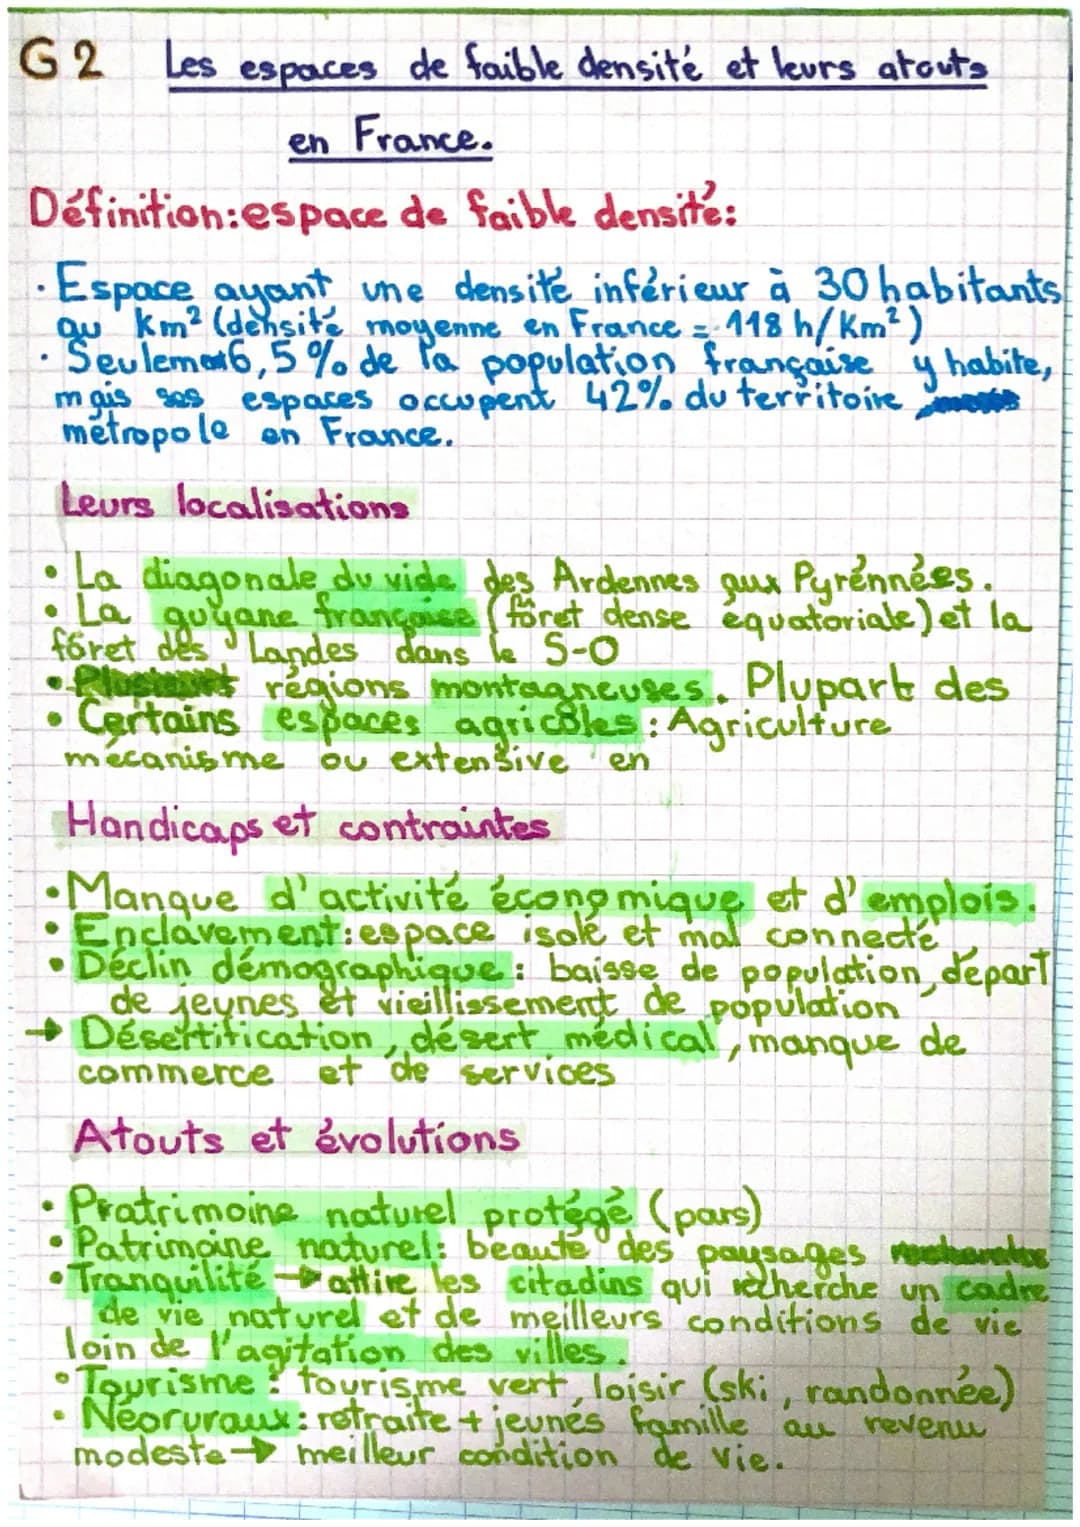 G2 Les espaces de faible densité et leurs atouts
en France.
Définition:espace de faible densité:
· Espace ayant une densité inférieur à 30 habitants
au km² (densité moyenne en France = 118 h/Km²)
· Seulement 6,5% de la population française y habite,
mais ses espaces occupent 42% du territoire
métropole en France.
Leurs localisations
• La diagonale du vide des Ardennes aux Pyrénnées.
• La guyane française (fôret dense équatoriale) et la
fôret des Landes dans le S-O
• régions montagneuses. Plupart des
• Certains espaces agricoles : Agriculture
mécanisme ou extensive en
Handicaps et contraintes
• Manque d'activité économique et d'emplois.
• Enclavement : espace isolé et mal connecté
• Déclin démographique : baisse de population, départ
de jeunes et vieillissement de population
→ Désertification, désert médical, manque de
commerce et de services
Atouts et évolutions
• Pratrimoine naturel protégé (pars)
• Patrimoine naturel : beauté des paysages
• Tranquilité → attire les citadins qui recherche un cadre
de vie naturel et de meilleurs conditions de vie
loin de l'agitation des villes.
• Tourisme : tourisme vert, loisir (ski, randonnée)
• Néoruraux : retraite + jeunes famille au revenu
modeste → meilleur condition de vie.